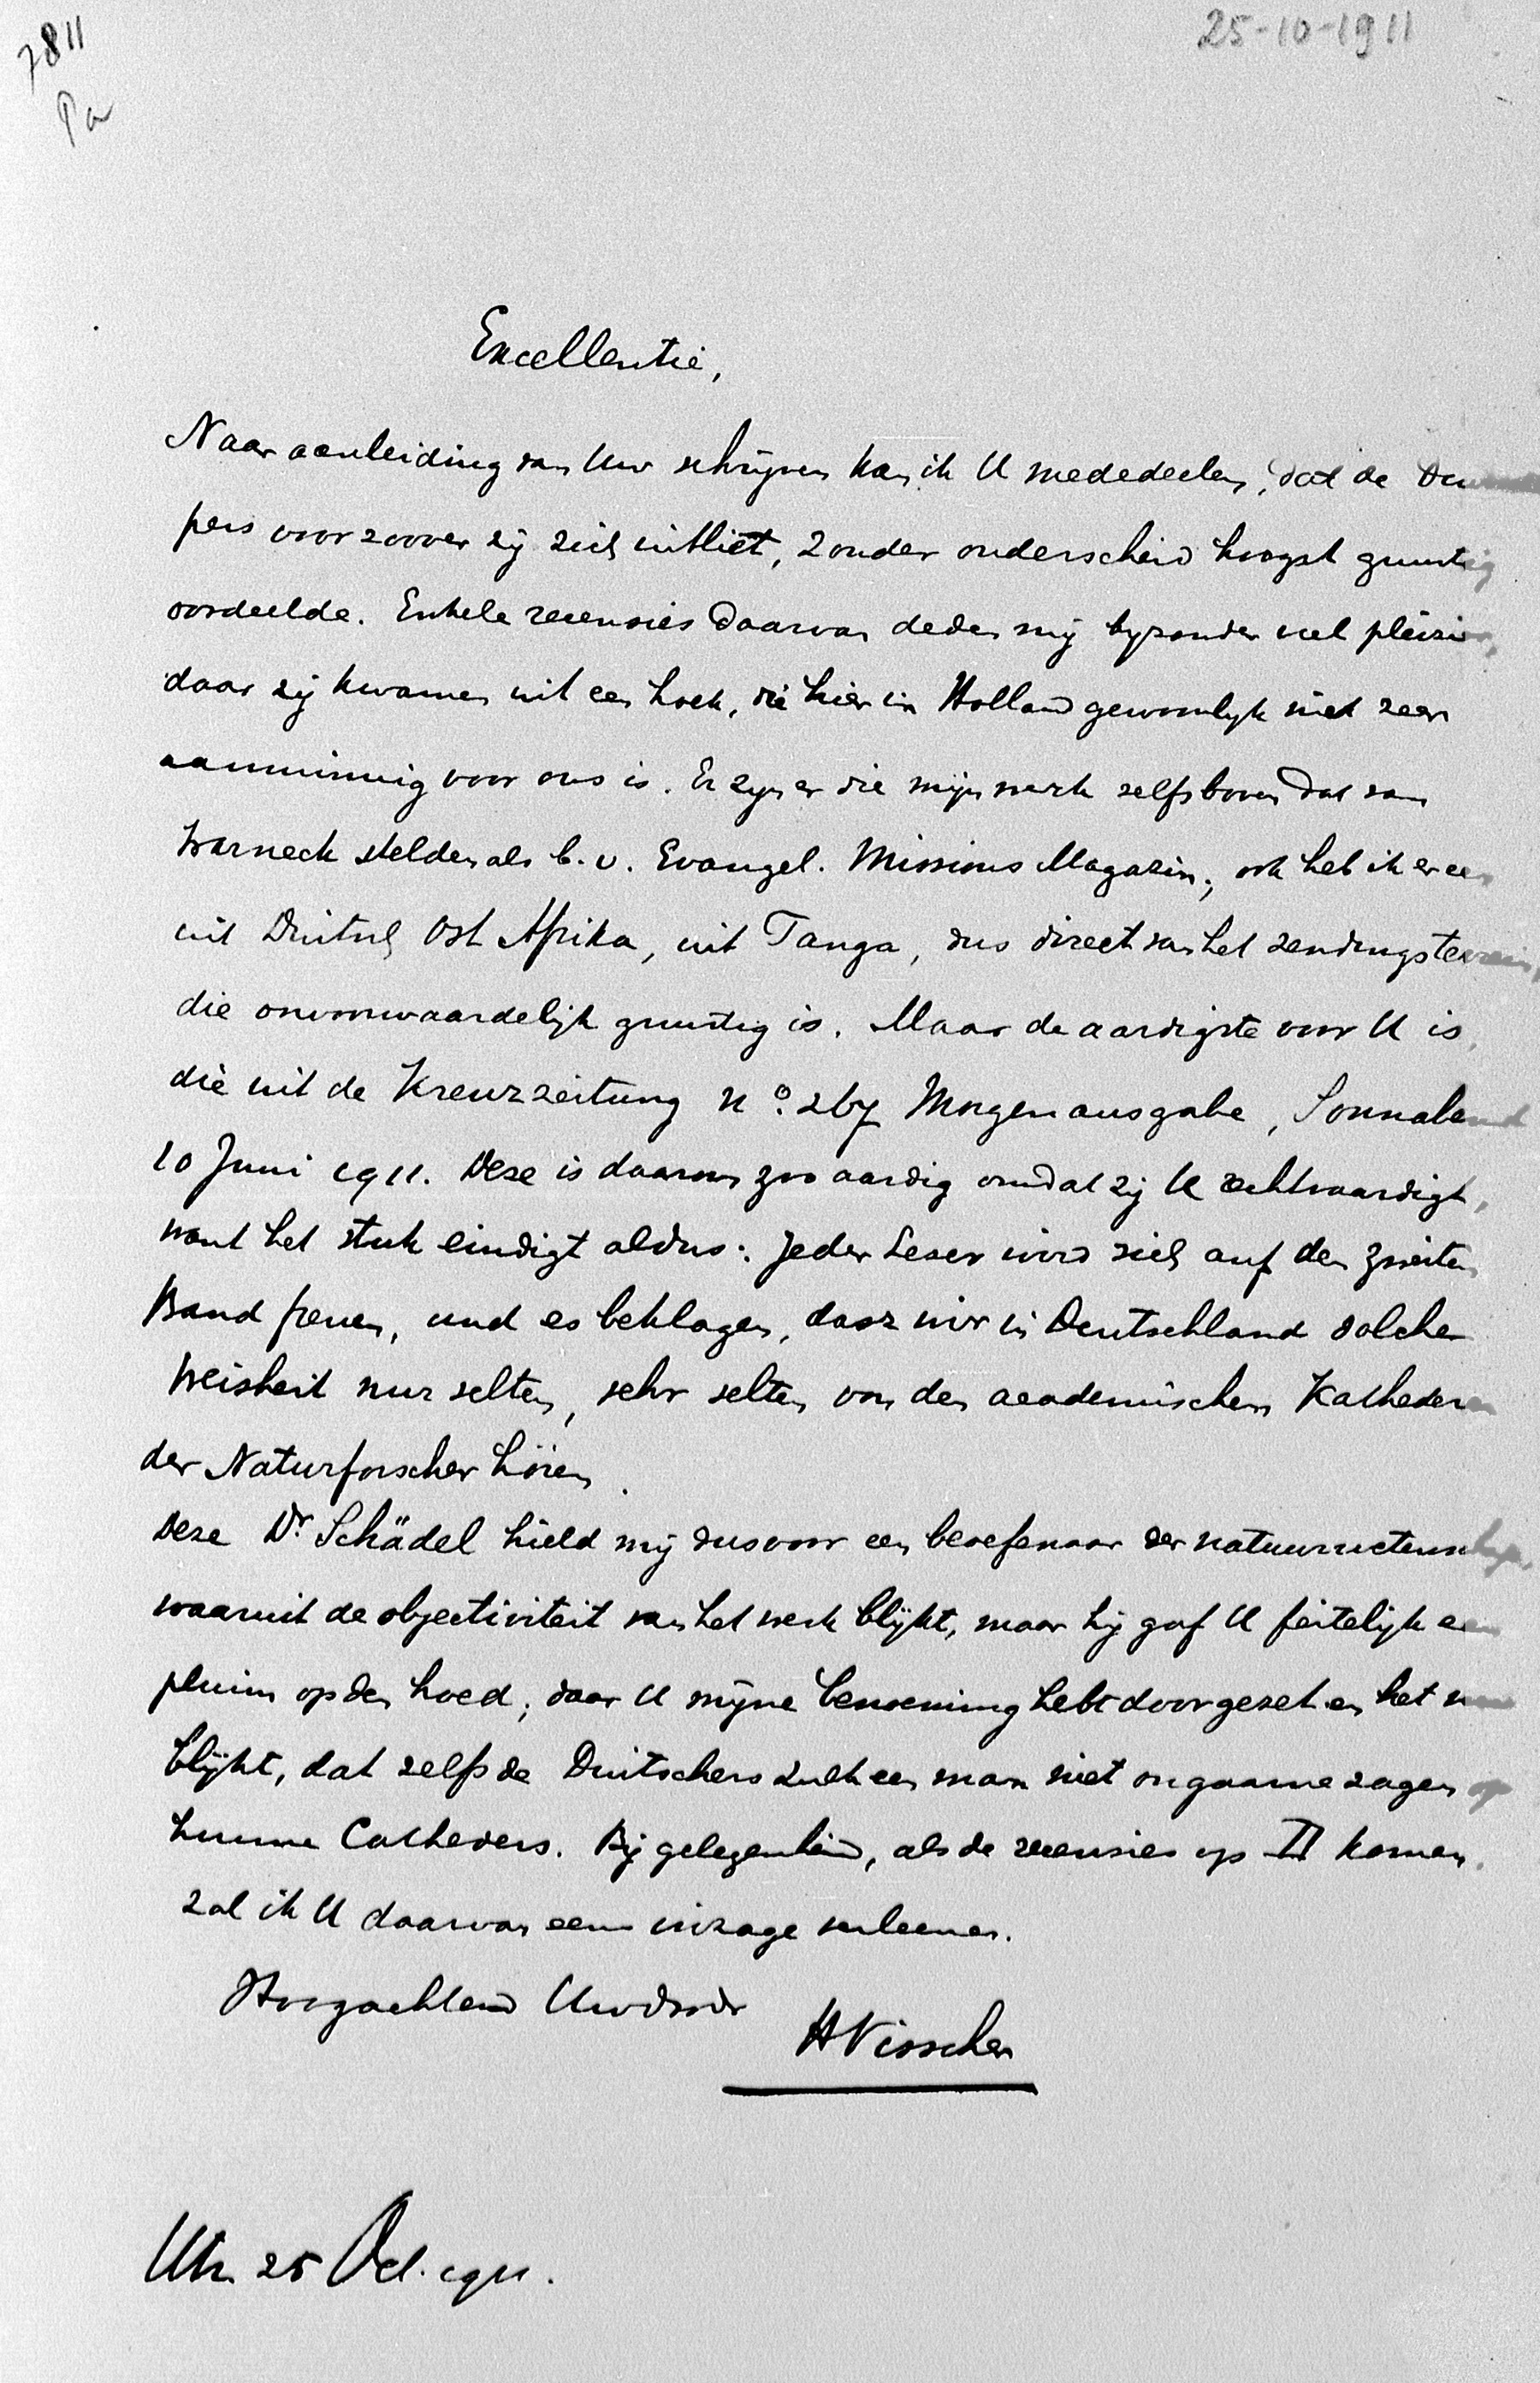 7811
Pa
25-10-1911
Excellentie,
Naar aanleiding van Uw schrijven kan ik U mededeelen, dat de
pers voor zoover zij zich uitliet, zonder onderscheid hoogst gunstig
oordeelde. Enkele recensies daarvan deden mij byzonder veel pleizier,
daar zij kwamen uit een hoek, die hier in Holland gewoonlyk niet zeer
aanminnig voor ons is. Er zyn er die mijn werk zelfs boven dat van
Warneck stelden als b.v. Evangel. Missions Magazin; ook heb ik er een
uit Duitsch Ost Afrika, uit Tanga, dus direct van het zendingsterrein,
die onvoorwaardelijk gunstig is. Maar de aardigste voor U is
die uit de Kreuzzeitung No. 267 Morgenausgabe, Sonnabend
10 Juni 1911. Deze is daarom zoo aardig omdat zij U rechtvaardigt,
want het stuk eindigt aldus: Jeder Leser wird sich auf den zweiten
Band freuen, und es beklagen, dasz wir in Deutschland solche
Weisheit nur selten, sehr selten von den academischen Kathedern
der Naturforscher hören.
Deze Dr. Schädel hield mij dus voor een beoefenaar der natuurwetenschap,
waaruit de objectiviteit van het werk blijkt, maar hij gaf U feitelijk een
pluim op den hoed, daar U mijne benoeming hebt doorgezet en het nu
blijkt, dat zelfs de Duitschers zulk een man niet ongaarne zagen op
hunne Catheders. Bij gelegenheid, als de recensies op II komen,
zal ik U daarvan eens inzage verleenen.
Hoogachtend Uwdwdr
HVisscher
Utr. 25 Oct. 1911.